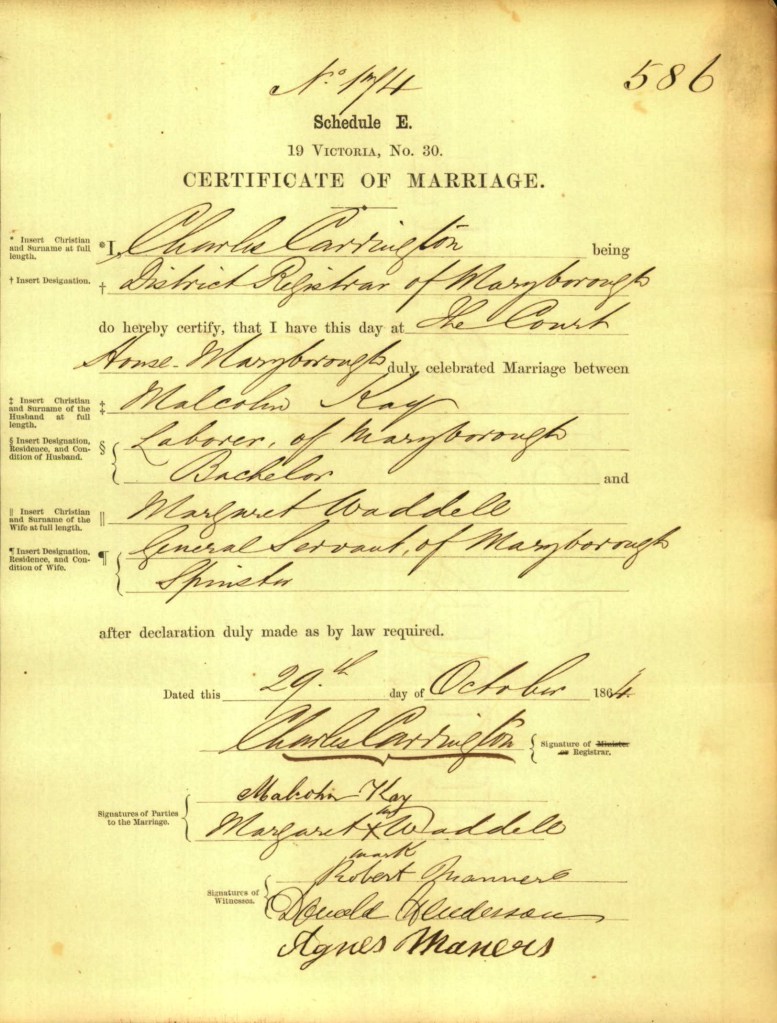 No. 174
586
Schedule E.
19 VICTORIA, No. 30.
CERTIFICATE OF MARRIAGE.
* Insert Christian and Surname at full length.
* I, Charles Carrington being
† Insert Designation.
† District Registrar of Maryborough
do hereby certify, that I have this day at The Court
House - Maryborough duly celebrated Marriage between
‡ Insert Christian and Surname of the Husband at full length.
‡ Malcolm Kay
§ Insert Designation, Residence, and Condition of Husband.
§ Laborer, of Maryborough
Bachelor and
‖ Insert Christian and Surname of the Wife at full length.
‖ Margaret Waddell
¶ Insert Designation, Residence, and Condition of Wife.
¶ General Servant, of Maryborough
Spinster
after declaration duly made as by law required.
Dated this 29.th day of October 1864.
Charles Carrington
Signature of Minister or Registrar.
Signatures of Parties to the Marriage.
Malcolm Kay
her
Margaret X Waddell
mark
Signatures of Witnesses.
Robert Manners
Donald Henderson
Agnes Maners